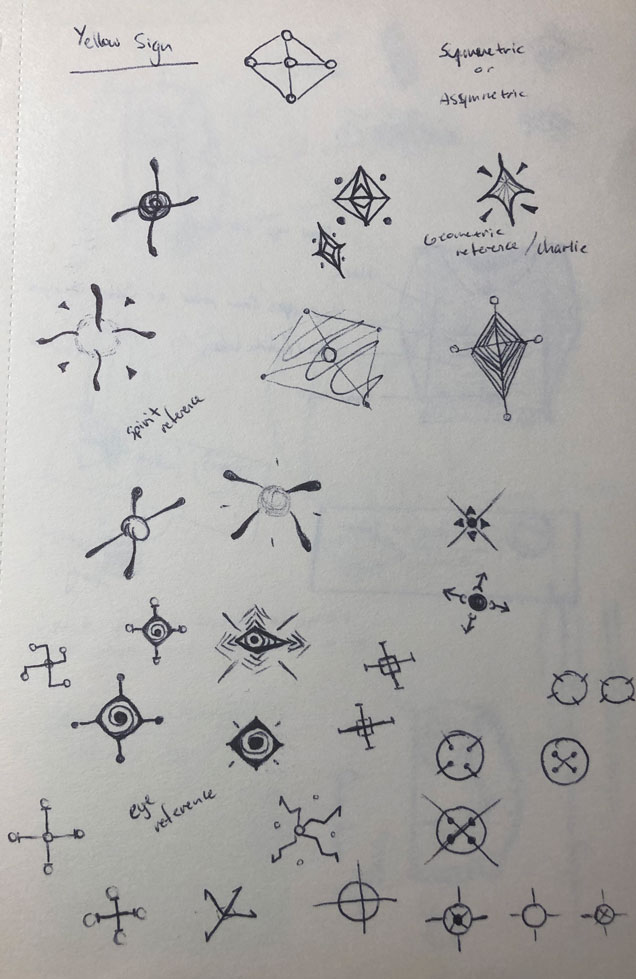 Yellow Sign
Symmetric
or
Assymetric
Geometric
reference / charlie
spirit
reference
eye
reference